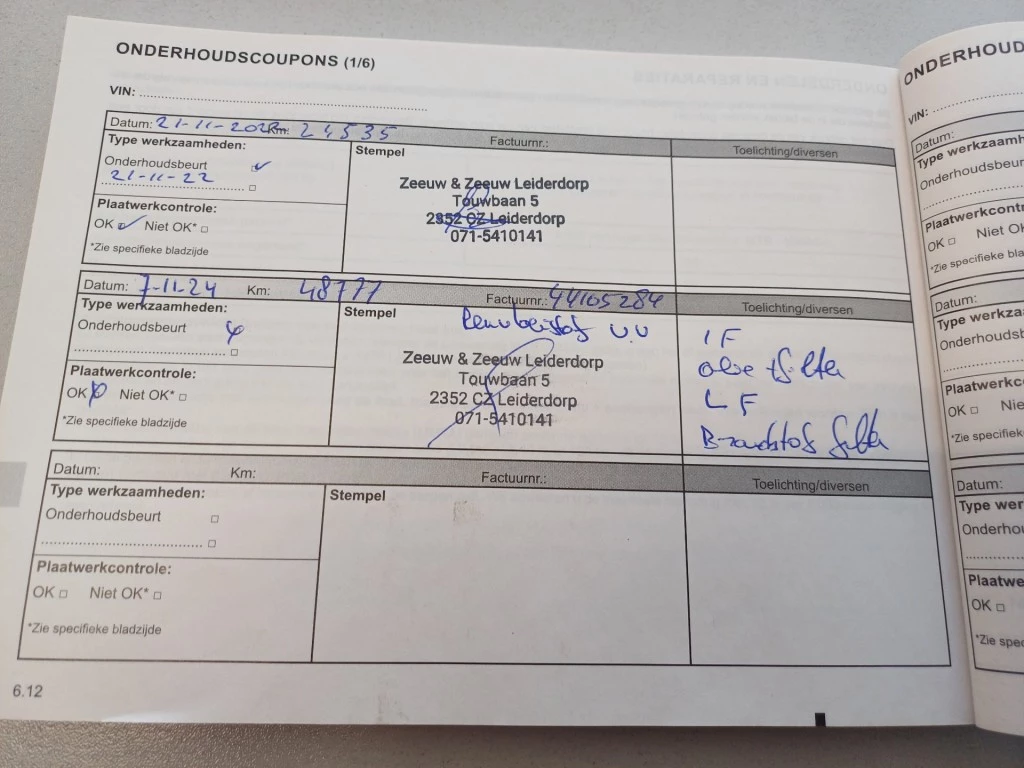 ONDERHOUDSCOUPONS (1/6)
VIN:
Datum: 21-11-2022 Km: 24535 Factuurnr.: Toelichting/diversen
Type werkzaamheden:
Onderhoudsbeurt
21-11-22
Plaatwerkcontrole:
OK Niet OK*
*Zie specifieke bladzijde
Stempel
Zeeuw & Zeeuw Leiderdorp
Touwbaan 5
2352 CZ Leiderdorp
071-5410141
Datum: 7-11-24 Km: 48777 Factuurnr.: 44105284 Toelichting/diversen
Type werkzaamheden:
Onderhoudsbeurt
Plaatwerkcontrole:
OK Niet OK*
*Zie specifieke bladzijde
Stempel
Remvloeistof v.v
Zeeuw & Zeeuw Leiderdorp
Touwbaan 5
2352 CZ Leiderdorp
071-5410141
IF
olie + filter
LF
Brandstof filter
Datum: Km: Factuurnr.: Toelichting/diversen
Type werkzaamheden:
Onderhoudsbeurt
Plaatwerkcontrole:
OK Niet OK*
*Zie specifieke bladzijde
Stempel
6.12
ONDERHOUD
VIN:
Datum:
Type werkzaamh
Onderhoudsbeur
Plaatwerkcontr
OK Niet O
*Zie specifieke bla
Datum:
Type werkza
Onderhoudsb
Plaatwerkco
OK Nie
*Zie specifieke
Datum:
Type wer
Onderho
Plaatwe
OK
*Zie spe